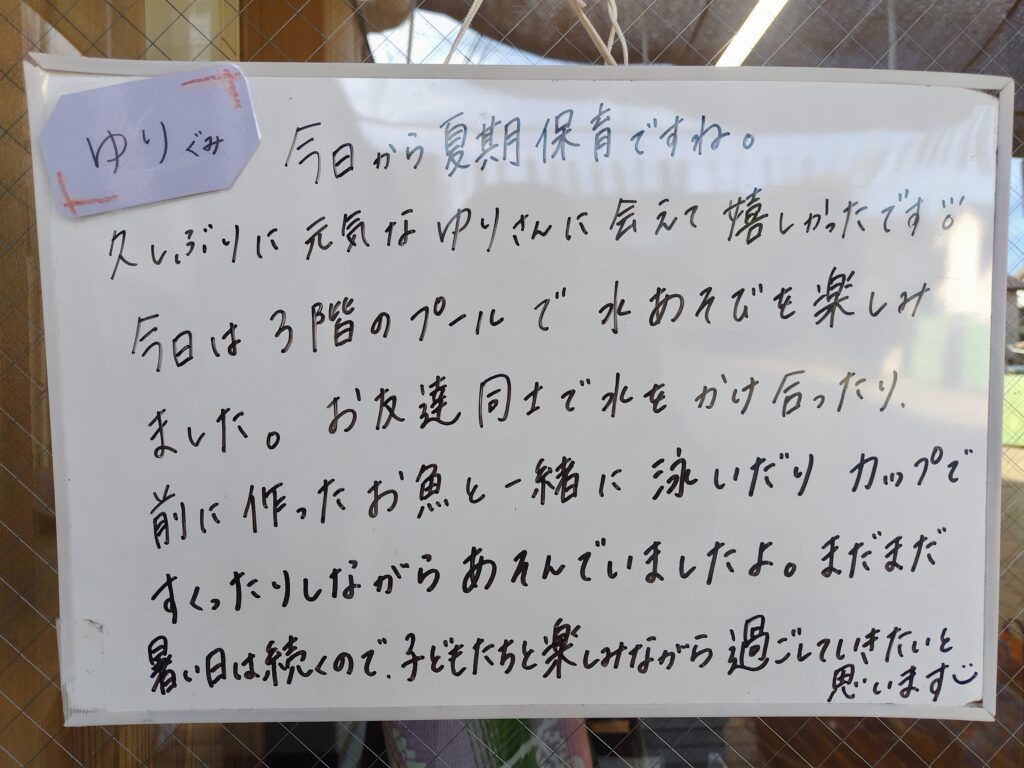 ゆりぐみ
今日から夏期保育ですね。
久しぶりに元気なゆりさんに会えて嬉しかったです
今日は3階のプールで水あそびを楽しみ
ました。お友達同士で水をかけ合ったり、
前に作ったお魚と一緒に泳いだりカップで
すくったりしながらあそんでいましたよ。まだまだ
暑い日は続くので、子どもたちと楽しみながら過ごしていきたいと
思います